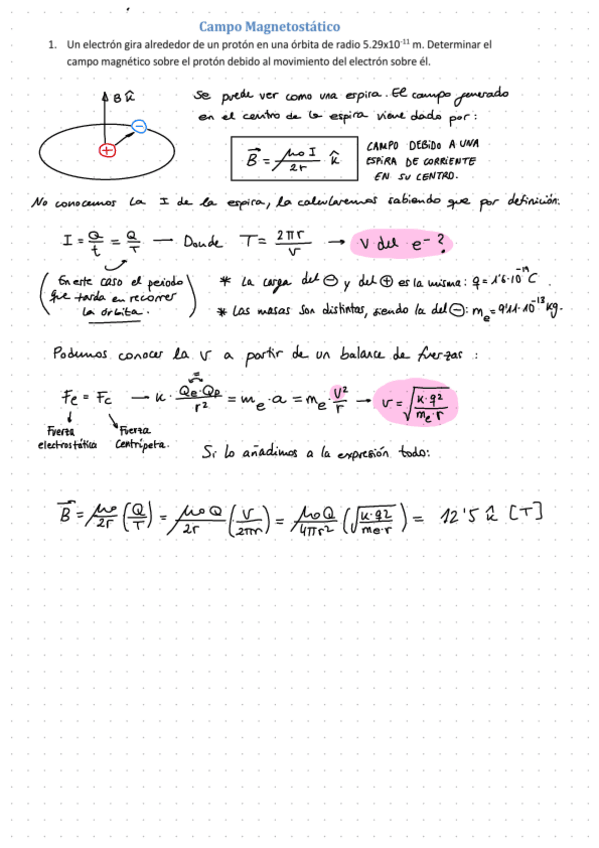 Campo Magnetostático
1. Un electrón gira alrededor de un protón en una órbita de radio 5.29x10⁻¹¹ m. Determinar el
campo magnético sobre el protón debido al movimiento del electrón sobre él.
B k̂
Se puede ver como una espira. El campo generado
en el centro de la espira viene dado por:
B⃗ = μo I / 2r k̂
CAMPO DEBIDO A UNA
ESPIRA DE CORRIENTE
EN SU CENTRO.
No conocemos la I de la espira, la calcularemos sabiendo que por definición:
I = Q/t = Q/T — Donde T = 2πr/v → v del e⁻ ?
(En este caso el periodo
que tarda en recorrer
la órbita.)
* La carga del ⊖ y del ⊕ es la misma: q = 1'6·10⁻¹⁹ C.
* Las masas son distintas, siendo la del ⊖: me = 9'11·10⁻¹³ kg.
Podemos conocer la v a partir de un balance de fuerzas:
Fe = Fc → k · Qe·Qp / r² = me·a = me · v²/r → v = √(k·q² / me·r)
Fuerza electrostática
Fuerza Centrípeta.
Si lo añadimos a la expresión todo:
B⃗ = μo/2r (Q/T) = μo Q/2r (v/2πr) = μo Q/4πr² (√(k·q²/me·r)) = 12'5 k̂ [T]